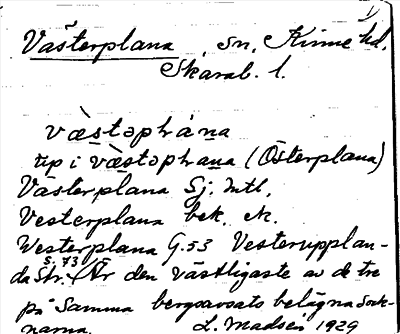 Västerplana, sn, Kinne hd,
Skarab. l.
væ̀stəpɫánа
typ i væ̀stəpɫana (Österplana)
Västerplana Sj. mtl,
Vesterplana bek. ek.
Westerplana G. 53 Vesterupplan-
da Str. S. 73 (Är den västligaste av de tre
på samma bergsavsats belägna sock-
narna. L. Madsén 1929